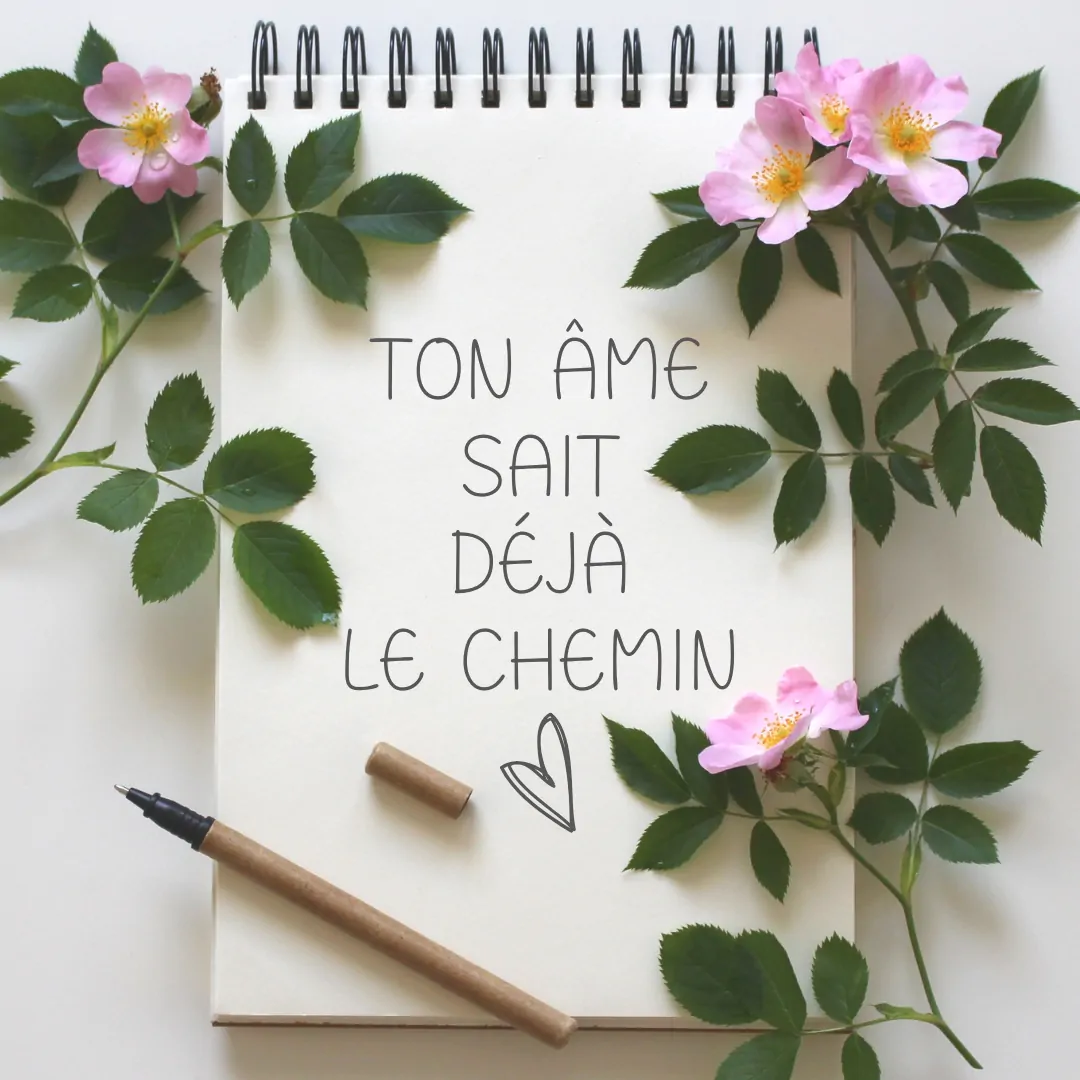 TON ÂME
SAIT
DÉJÀ
LE CHEMIN